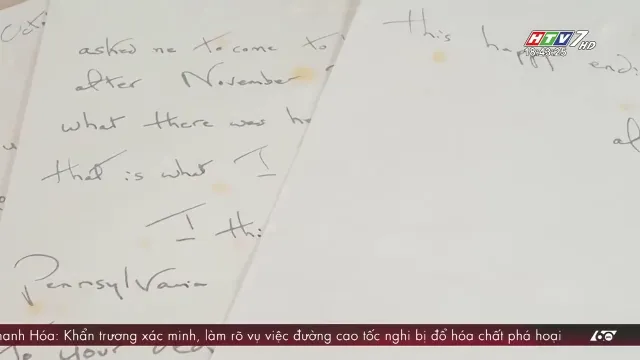 HTV7 HD
18:43:25
Oct
asked me to come to
after November
what there was
that is what I
I thi
Pennsylvania
to your
this happy endi
hanh Hóa: Khẩn trương xác minh, làm rõ vụ việc đường cao tốc nghi bị đổ hóa chất phá hoại
60